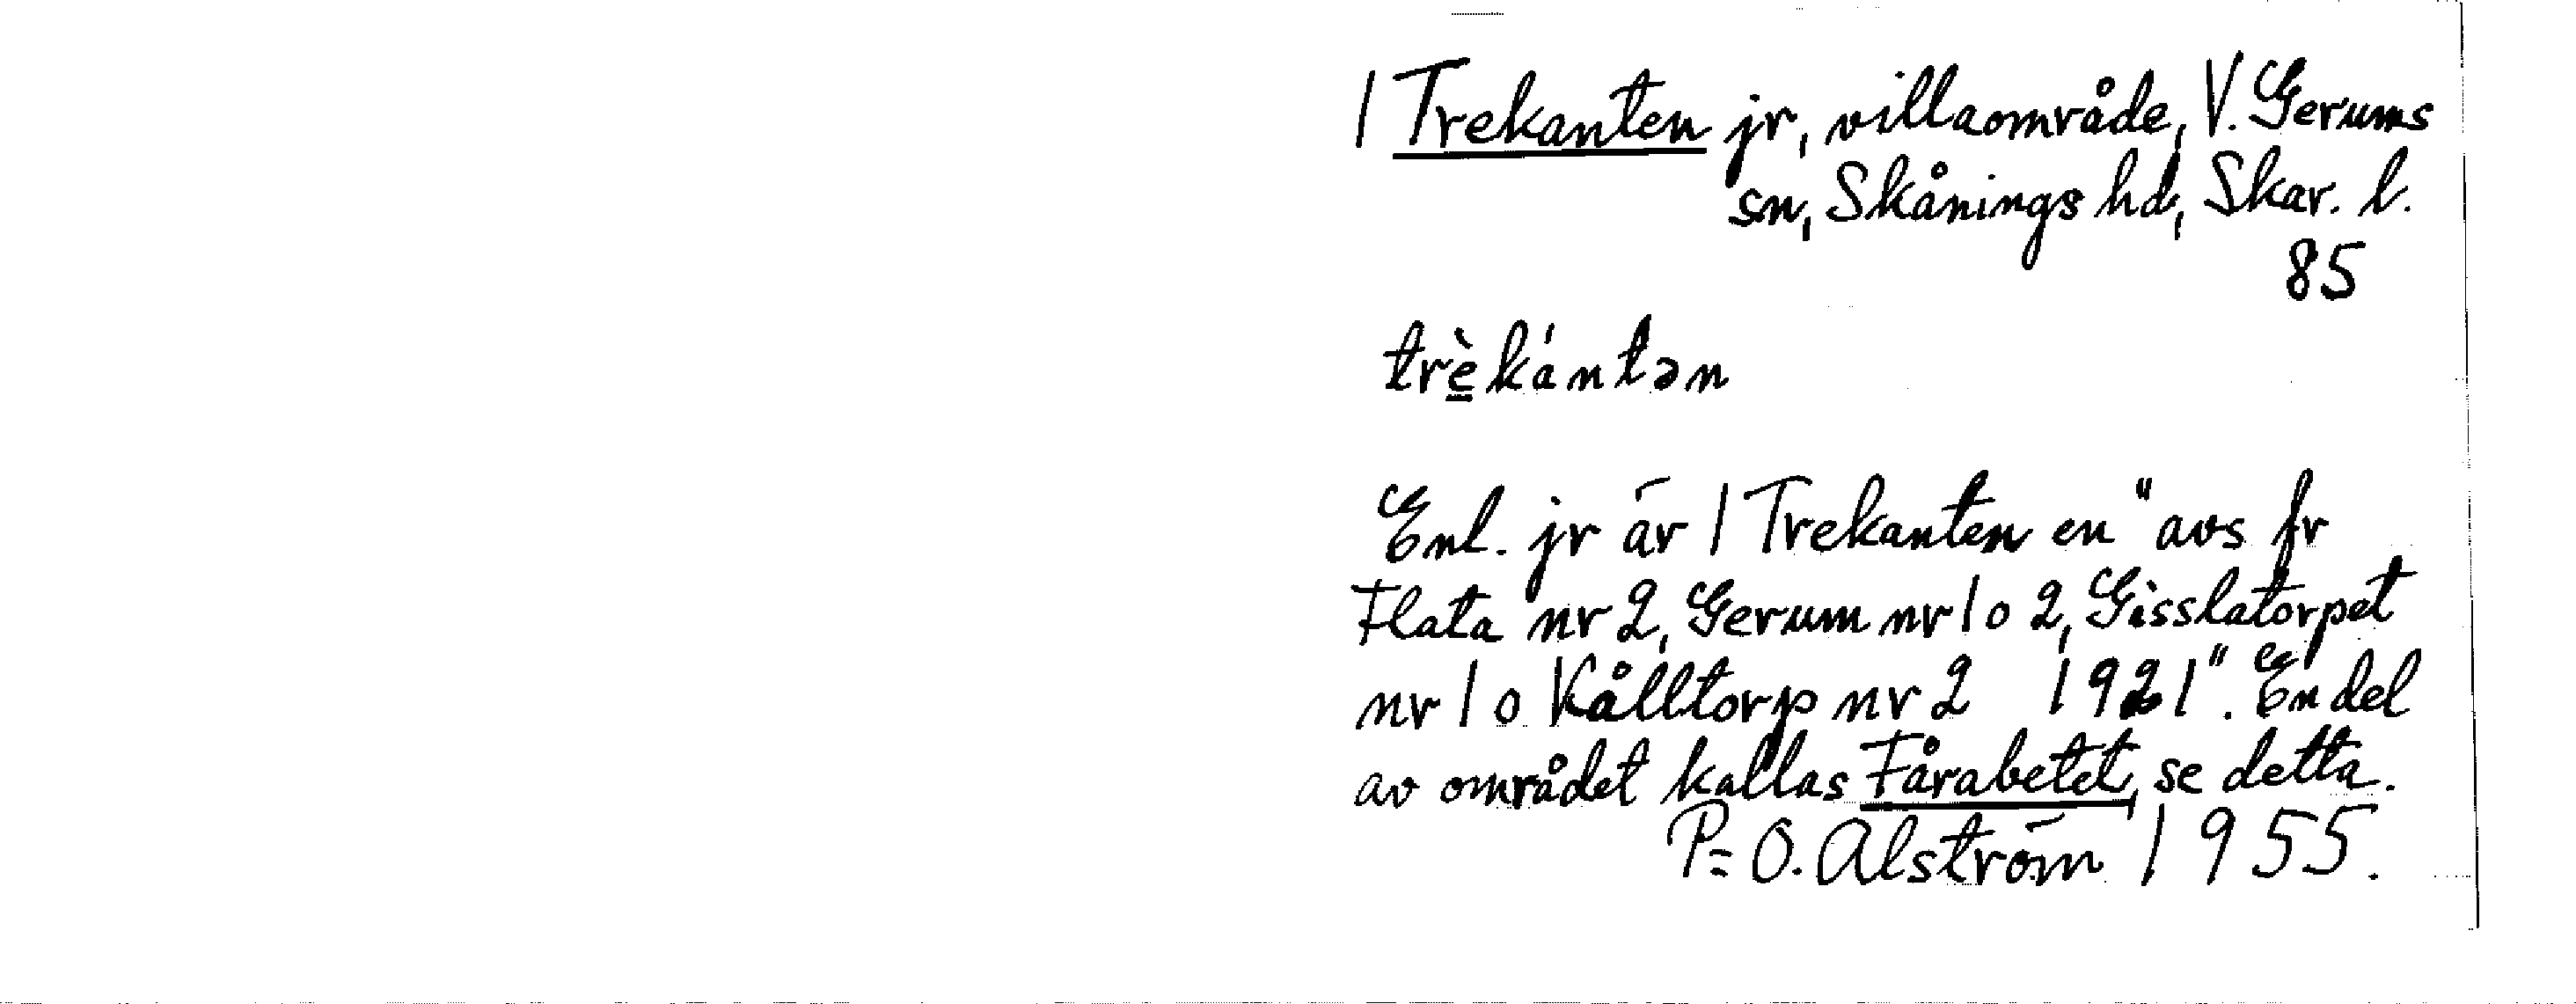 1 Trekanten jr, villaområde, V. Gerums
sn, Skånings hd, Skar. l.
85
trèkántən
Enl. jr är 1 Trekanten en "avs fr
Flata nr 2, Gerum nr 1 o 2, Gisslatorpet
nr 1 o Kålltorp nr 2 1921". En del
av området kallas Fårabetet, se detta.
P=O. Alström 1955.